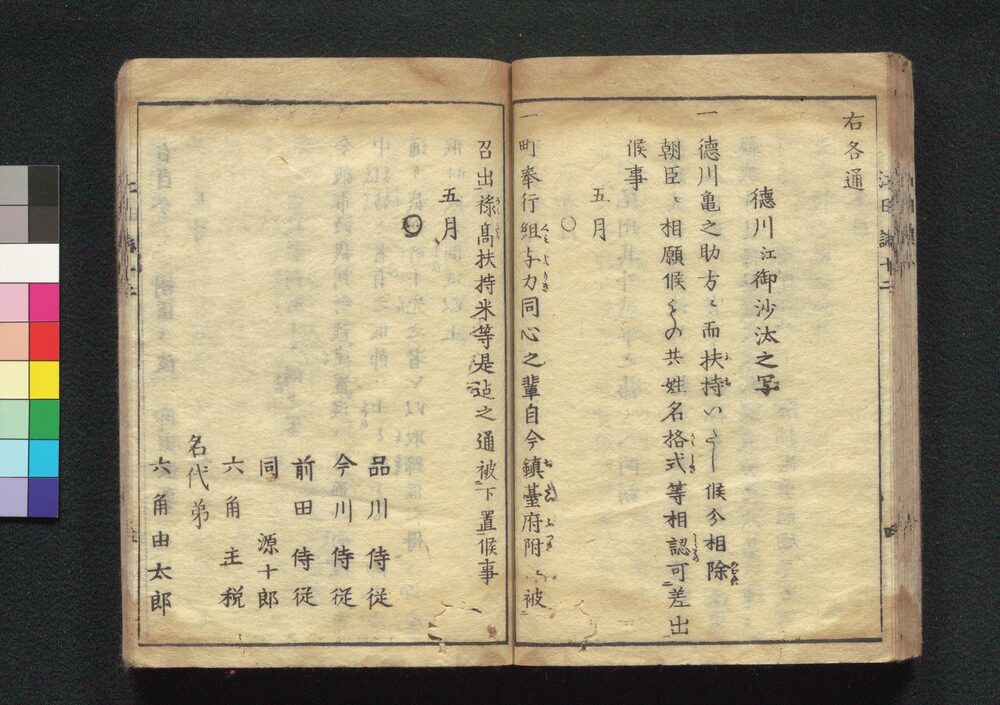 右各通
徳川江御沙汰之写
一 徳川亀之助方ニ而扶持いたし候分相除
朝臣ニ相願候もの共姓名格式等相認可差出
候事
五月
〇
一 町奉行組与力同心之輩自今鎮臺府附ニ被
召出禄高扶持米等是迠之通被下置候事
五月
〇
品川侍従
今川侍従
前田侍従
同 源十郎
六角主税
名代弟
六角由太郎